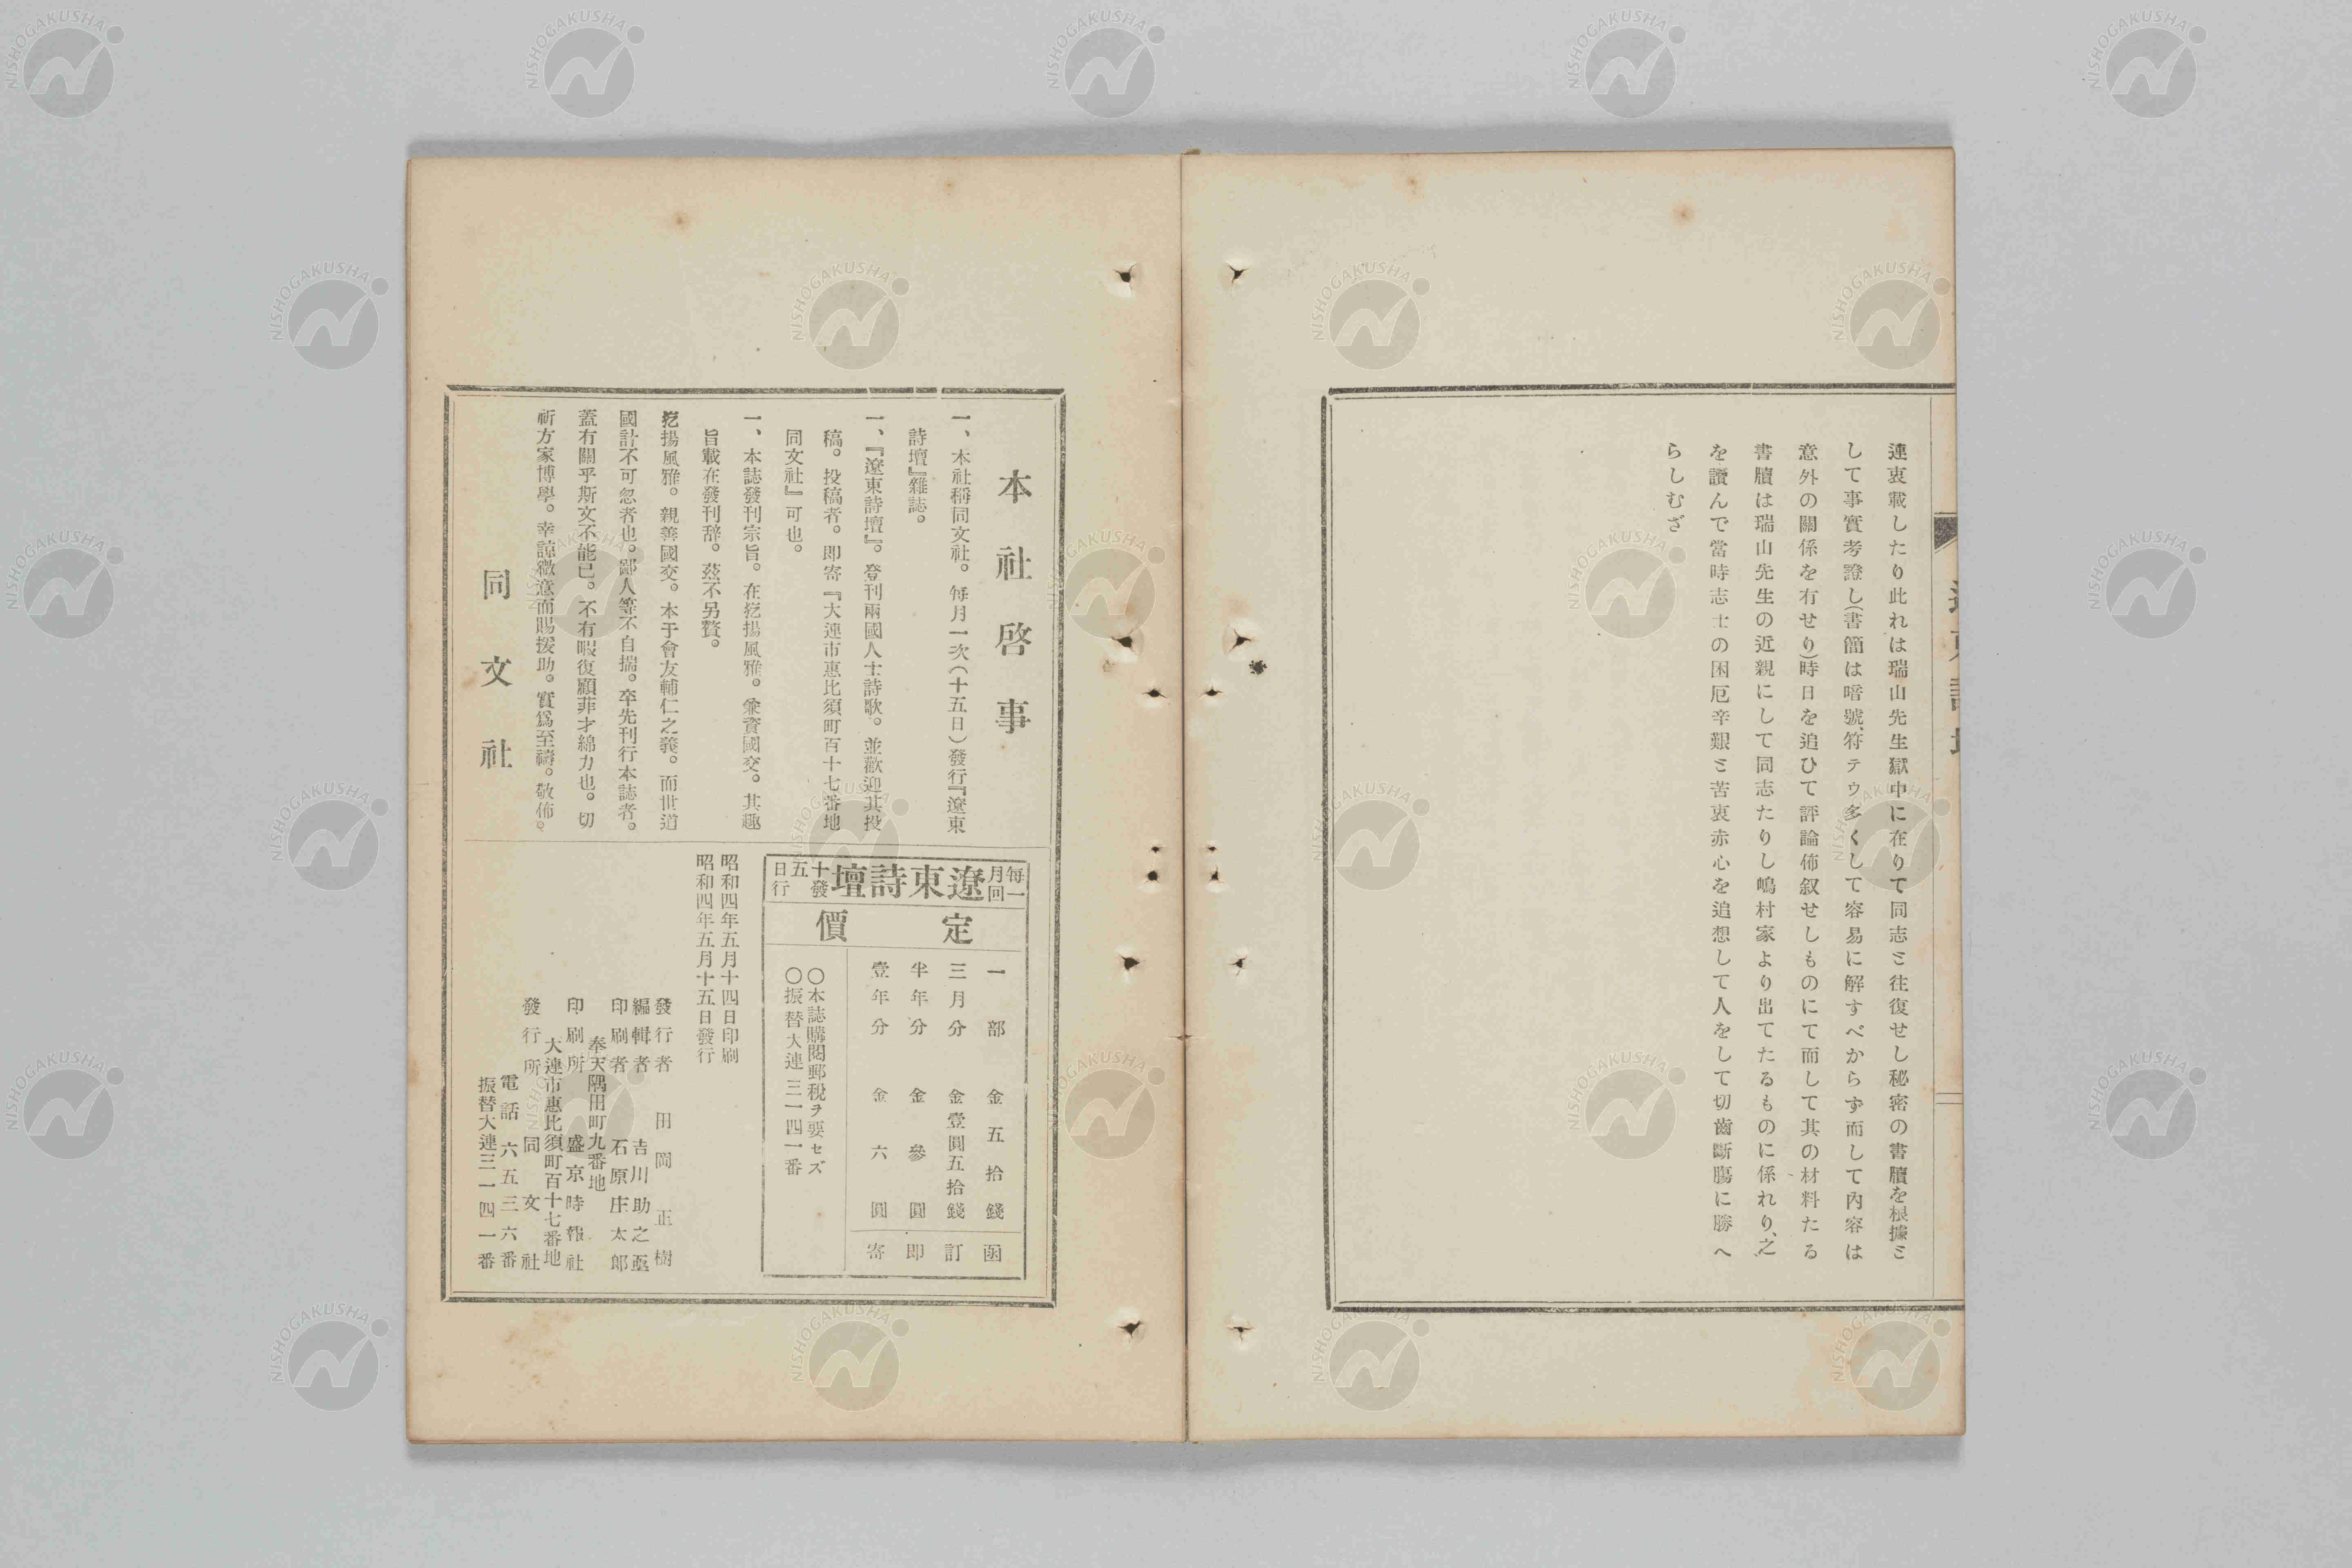 連衷載したり此れは瑞山先生獄中に在りて同志ミ往復せし秘密の書牘を根據ミ
して事實考證し(書簡は暗號、符テゥ多くして容易に解すべからず而して内容は
意外の關係を有せり)時日を追ひて評論佈叙せしものにて而して其の材料たる
書牘は瑞山先生の近親にして同志たりし嶋村家より出てたるものに係れり、之
を讀んで當時志士の困厄辛艱ミ苦衷赤心を追想して人をして切齒斷膓に勝へ
らしむざ
本社啓事
一、本社稱同文社。每月一次(十五日)發行『遼東
詩壇』雜誌。
一、『遼東詩壇』。登刊兩國人士詩歌。並歡迎其投
稿。投稿者。即寄『大連市惠比須町百十七番地
同文社』可也。
一、本誌發刊宗旨。在扢揚風雅。兼資國交。其趣
旨載在發刊辞。茲不另贅。
扢揚風雅。親善國交。本于會友輔仁之義。而世道
國計不可忽者也。鄙人等不自揣。卒先刊行本誌者。
蓋有關乎斯文不能已。不有暇復顧菲才綿力也。切
祈方家博學。幸諒微意而賜援助。實爲至禱。敬佈。
同文社
每月一回
遼東詩壇
十五日發行
定價
一部 金五拾錢 函
三月分 金壹圓五拾錢 訂
半年分 金參圓 即
壹年分 金六圓 寄
〇本誌購閱郵稅ヲ要セズ
〇振替大連三一四一番
昭和四年五月十四日印刷
昭和四年五月十五日發行
發行者 田岡正樹
編輯者 吉川助之亟
印刷者 石原庄太郎
奉天隅田町九番地
印刷所 盛京時報社
大連市惠比須町百十七番地
發行所 同文社
電話六五三六番
振替大連三一四一番
NISHOGAKUSHA